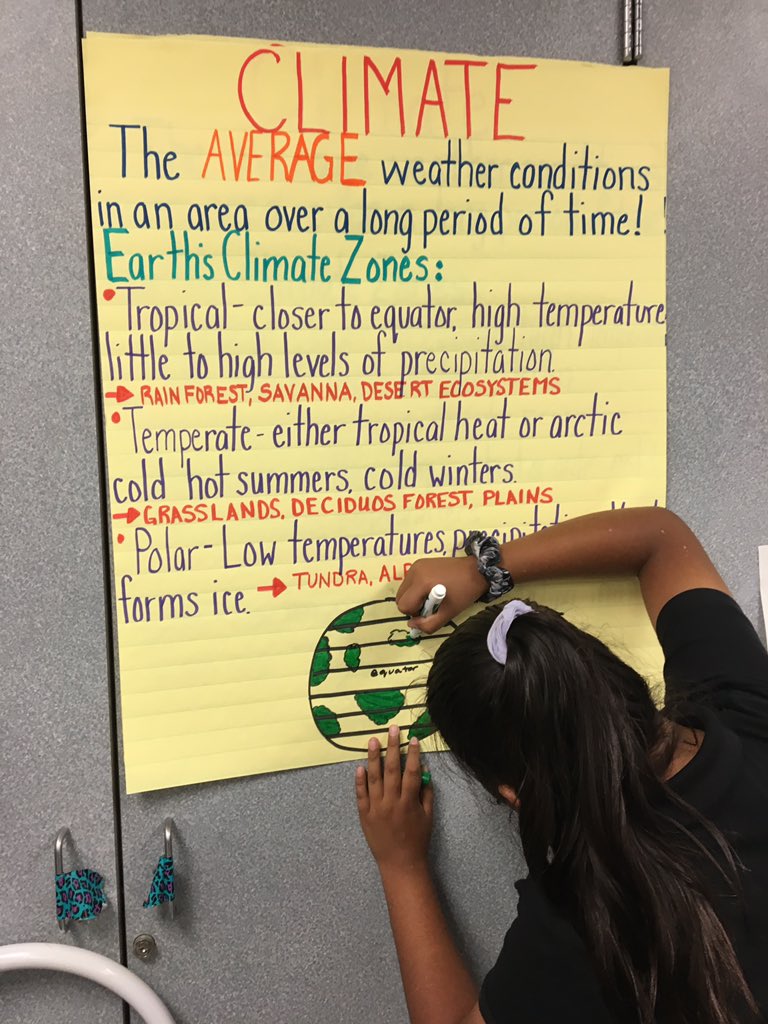 CLIMATE
The AVERAGE weather conditions
in an area over a long period of time!
Earth's Climate Zones:
• Tropical - closer to equator, high temperature
little to high levels of precipitation.
→ RAINFOREST, SAVANNA, DESERT ECOSYSTEMS
• Temperate - either tropical heat or arctic
cold hot summers, cold winters.
→ GRASSLANDS, DECIDUOS FOREST, PLAINS
• Polar - Low temperatures,
forms ice. → TUNDRA,
equator